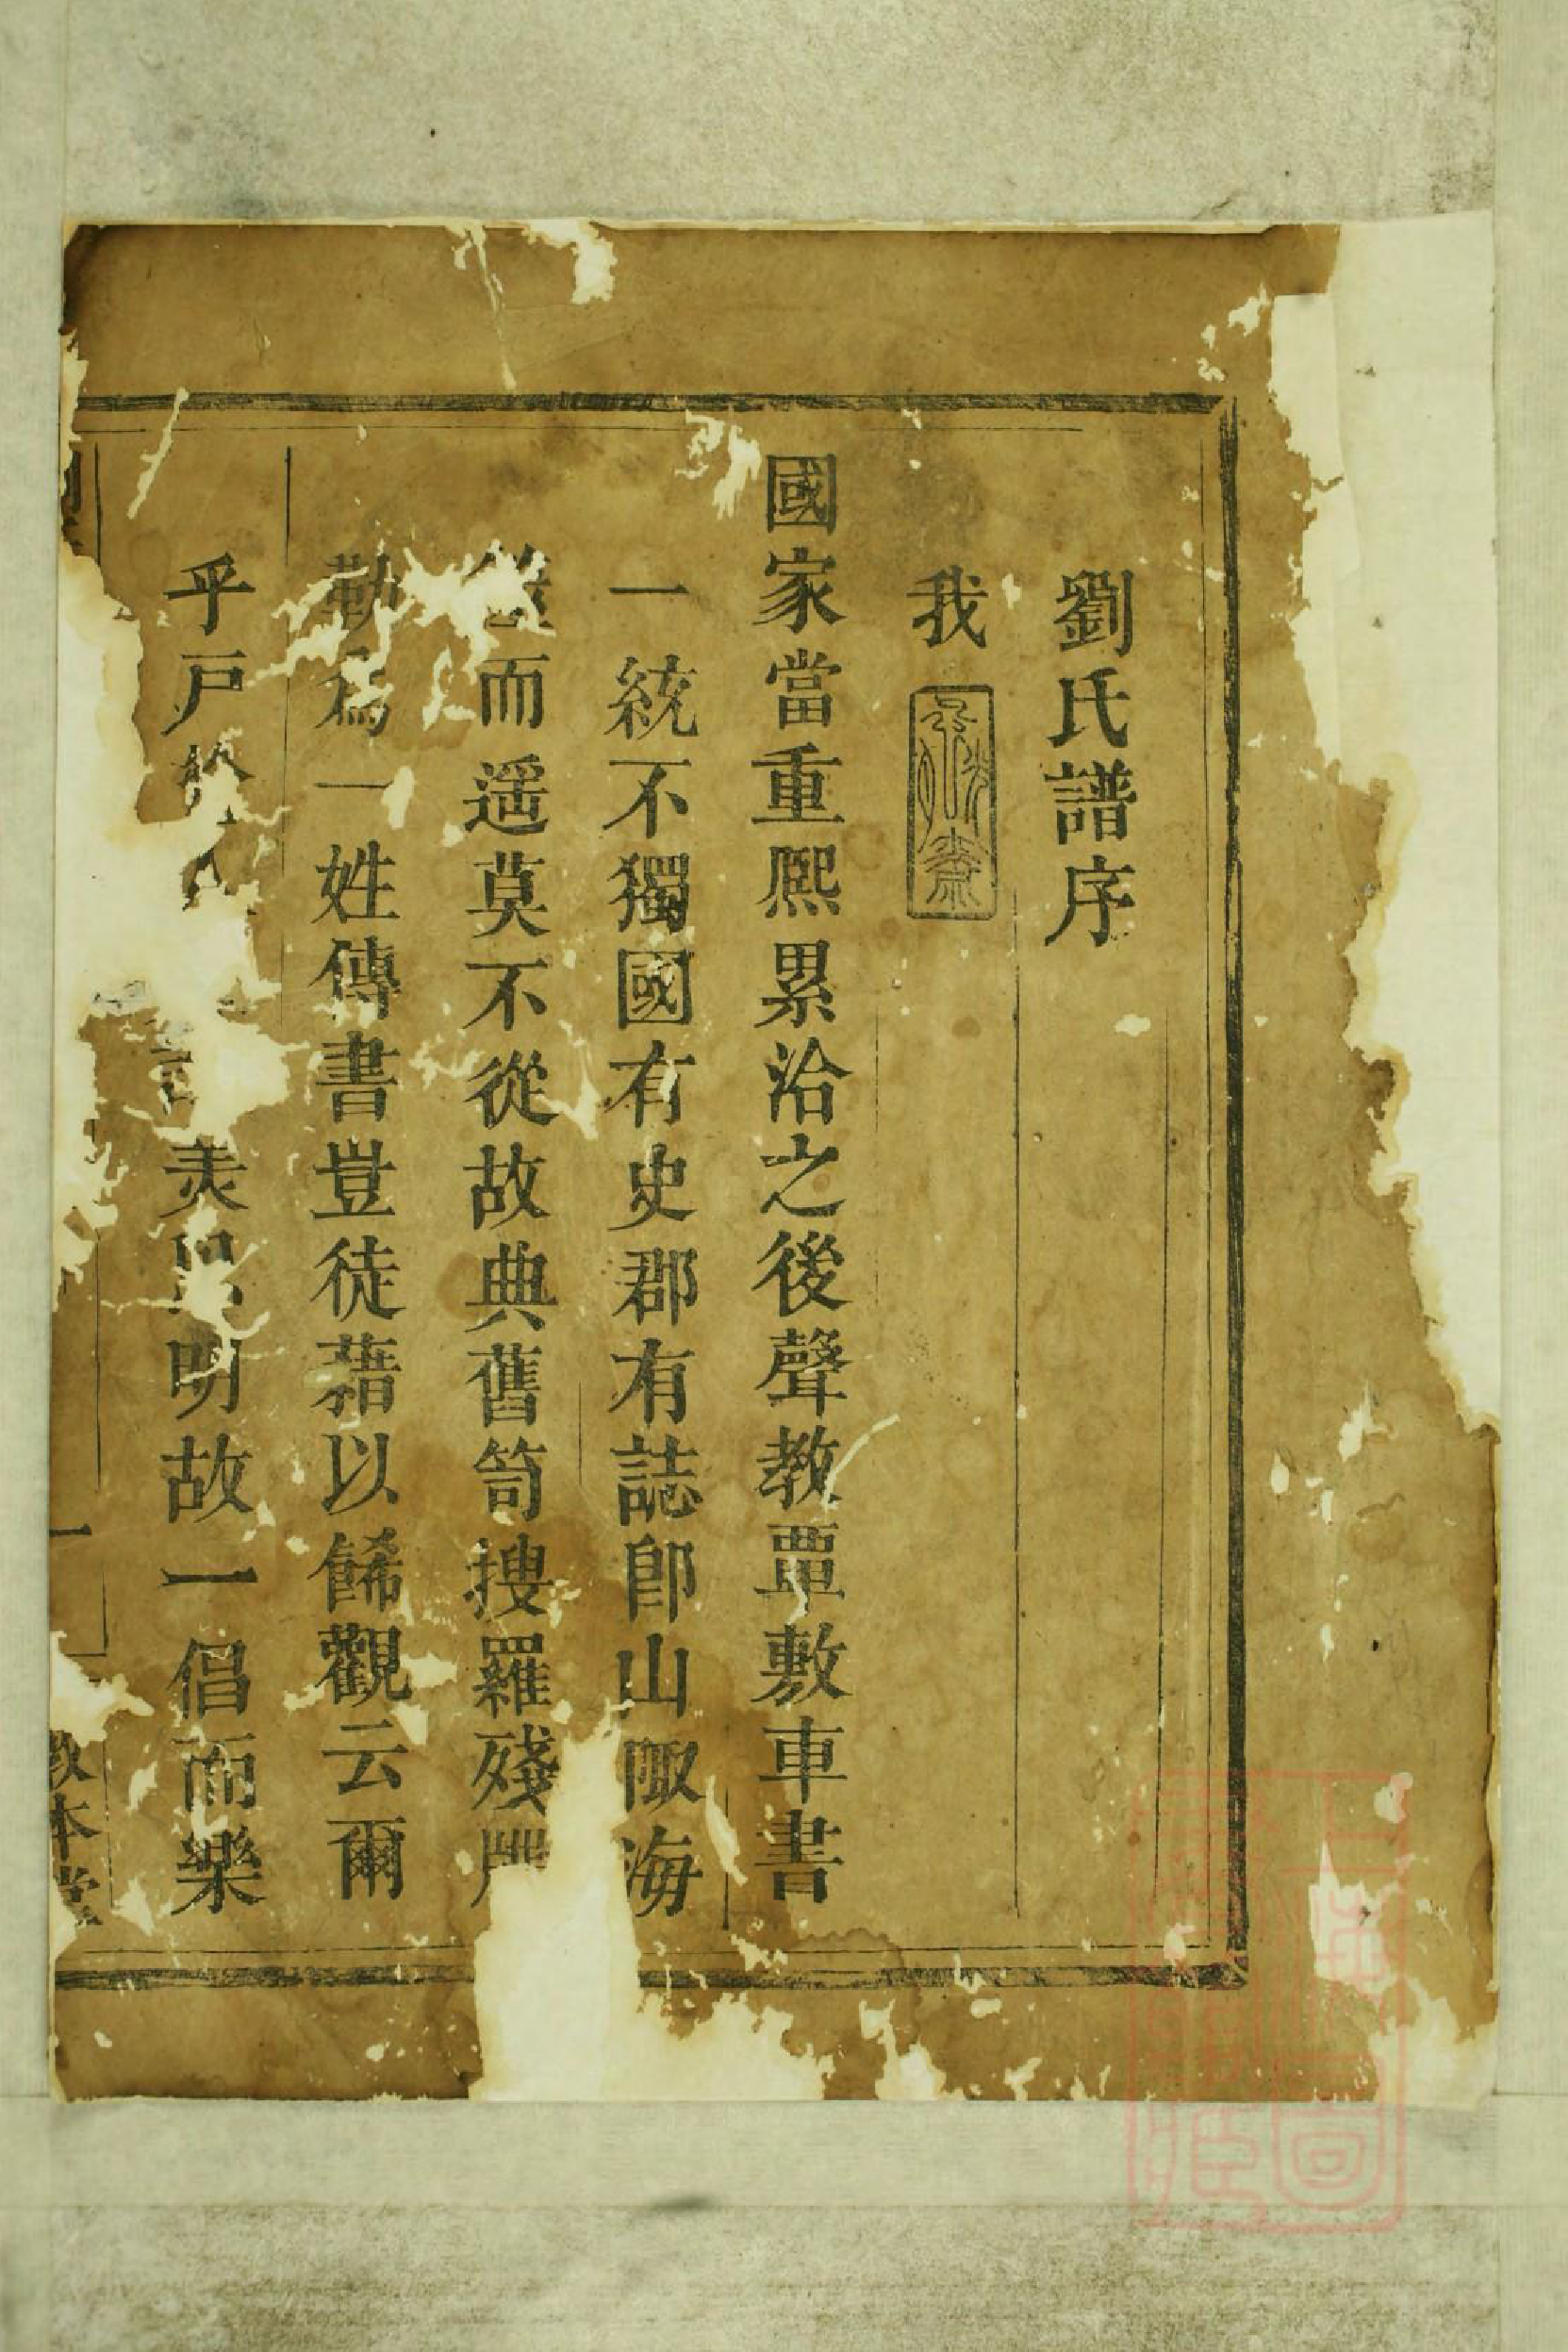 劉氏譜序
我
國家當重熈累洽之後聲教覃敷車書
一統不獨國有史郡有誌卽山陬海
而遥莫不從故典舊笥搜羅殘
勒爲一姓傳書豈徒藉以餙觀云爾
乎戸 羙 明故一倡而樂
一
敦本堂